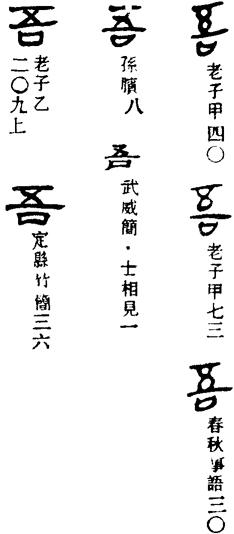 吾 老子甲四〇
吾 老子甲七三
吾 春秋事語三〇
吾 孫臏八
吾 武威簡·士相見一
吾 老子乙二〇九上
吾 定縣竹簡三六